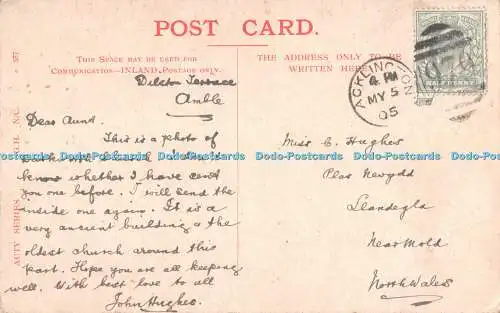 POST CARD.
THIS SPACE MAY BE USED FOR
COMMUNICATION—INLAND, POSTAGE ONLY.
Dilston Terrace
Amble
Dear Aunt.
This is a photo of
know whether I have sent
you one before. I will send the
inside one again. It is a
very ancient building & the
oldest church around this
part. Hope you are all keeping
well. With best love to all
John Hughes.
THE ADDRESS ONLY TO BE
WRITTEN HERE
ACKLINGTON
4 PM
MY 5
05
Miss C. Hughes
Plas Newydd
Llandegla
Near Mold
North Wales
AUTY SERIES
G.H. N/C.
Dodo-Postcards Dodo-Postcards Dodo-Postcards Dodo-Postcards Dodo-Postcards Dodo-Postcards